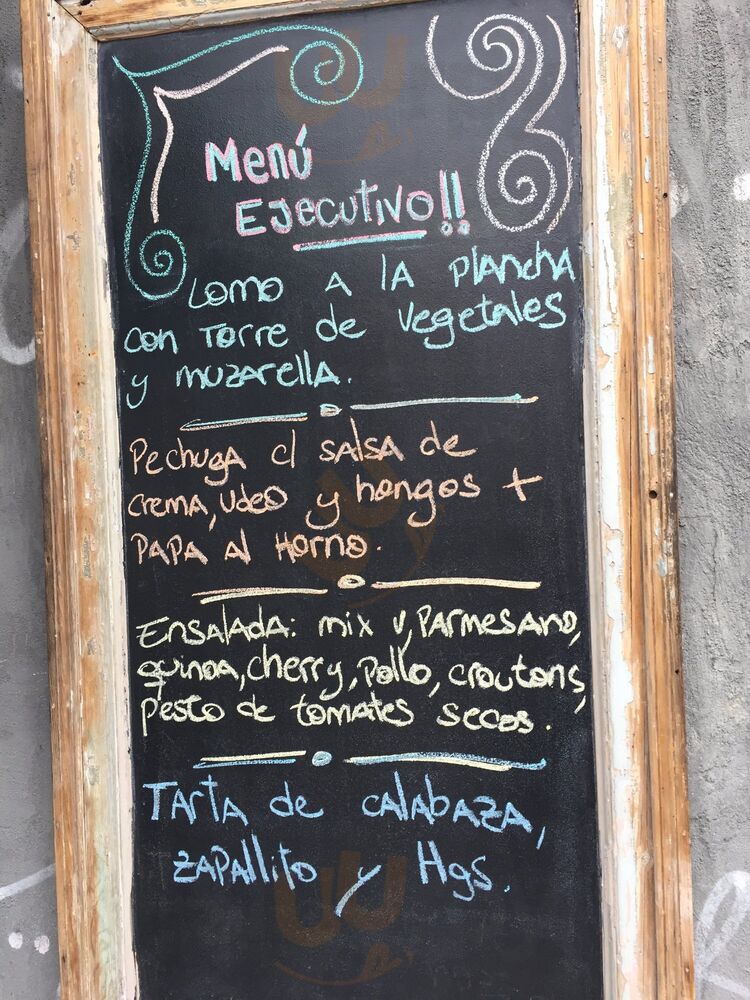 Menú
EJecutivo!!
Lomo A lA plancha
con Torre de vegetales
y muzarella.
Pechuga c/ salsa de
crema, vdeo y hongos +
PAPA Al Horno.
Ensalada: mix v, Parmesano,
quinoa, cherry, Pollo, croutons,
pesto de tomates secos.
Tarta de calabaza,
zapallito y Hgs.